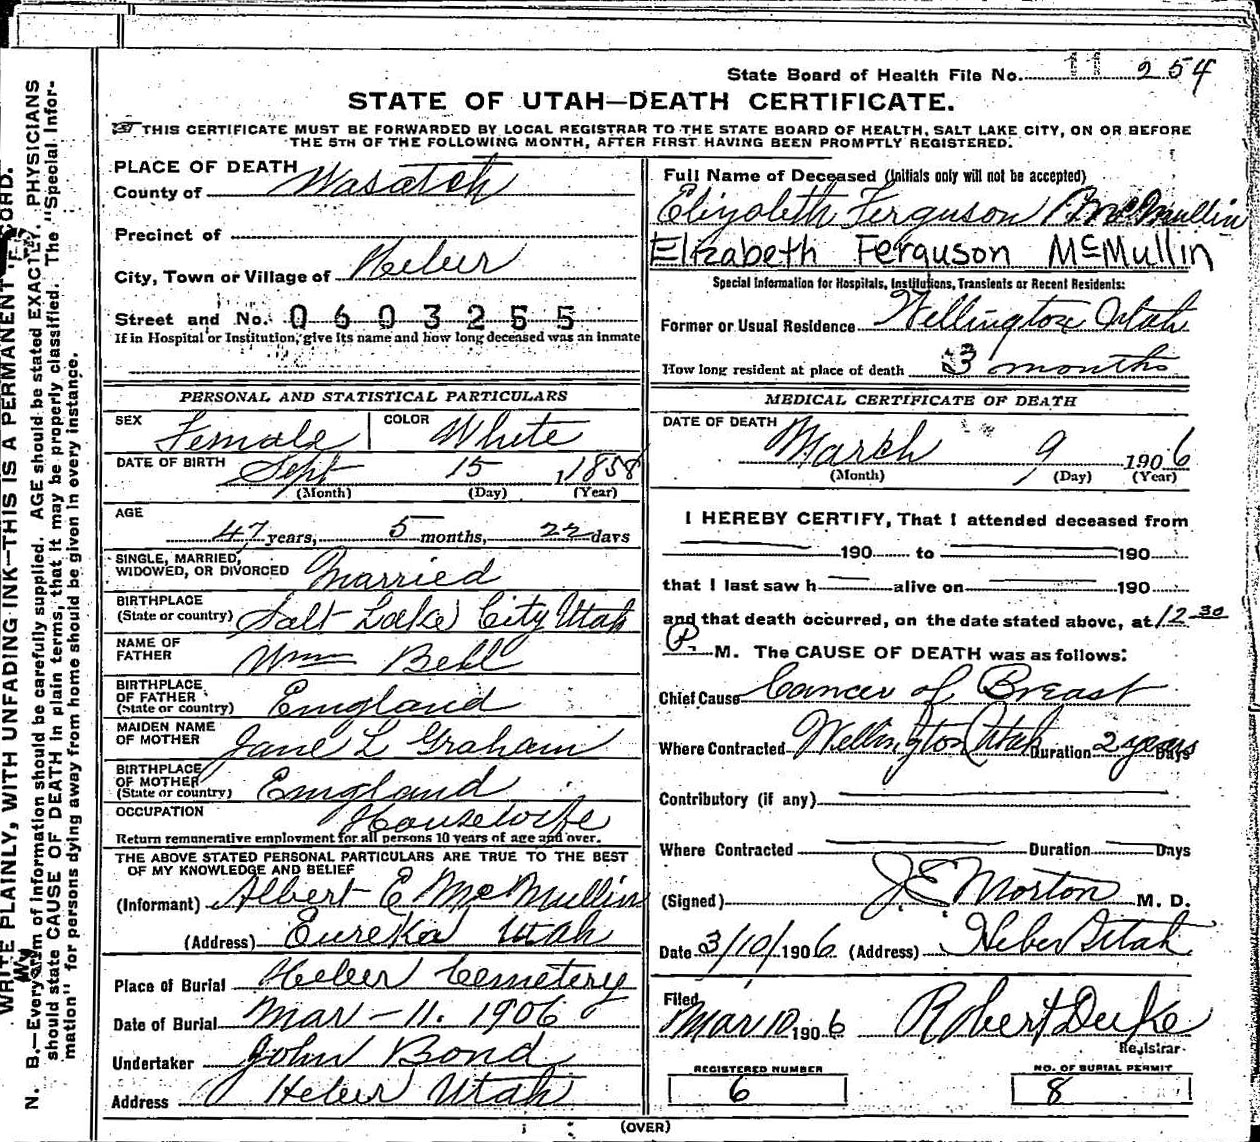 State Board of Health File No. 11 254
STATE OF UTAH—DEATH CERTIFICATE.
THIS CERTIFICATE MUST BE FORWARDED BY LOCAL REGISTRAR TO THE STATE BOARD OF HEALTH, SALT LAKE CITY, ON OR BEFORE
THE 5TH OF THE FOLLOWING MONTH, AFTER FIRST HAVING BEEN PROMPTLY REGISTERED.
PLACE OF DEATH
County of Wasatch
Precinct of
City, Town or Village of Heber
Street and No. 0603255
If in Hospital or Institution, give its name and how long deceased was an inmate
PERSONAL AND STATISTICAL PARTICULARS
SEX Female COLOR White
DATE OF BIRTH Sept 15, 1858
(Month) (Day) (Year)
AGE
47 years, 5 months, 22 days
SINGLE, MARRIED,
WIDOWED, OR DIVORCED Married
BIRTHPLACE
(State or country) Salt Lake City Utah
NAME OF
FATHER Wm Bell
BIRTHPLACE
OF FATHER
(State or country) England
MAIDEN NAME
OF MOTHER Jane L Graham
BIRTHPLACE
OF MOTHER
(State or country) England
OCCUPATION Housewife
Return remunerative employment for all persons 10 years of age and over.
THE ABOVE STATED PERSONAL PARTICULARS ARE TRUE TO THE BEST
OF MY KNOWLEDGE AND BELIEF
(Informant) Albert E McMullin
(Address) Eureka Utah
Place of Burial Heber Cemetery
Date of Burial Mar - 11. 1906
Undertaker John Bond
Address Heber Utah
Full Name of Deceased (Initials only will not be accepted)
Elizabeth Ferguson McMullin
Elizabeth Ferguson McMullin
Special Information for Hospitals, Institutions, Transients or Recent Residents:
Former or Usual Residence Wellington Utah
How long resident at place of death 3 months
MEDICAL CERTIFICATE OF DEATH
DATE OF DEATH
March 9 1906
(Month) (Day) (Year)
I HEREBY CERTIFY, That I attended deceased from
190 to 190
that I last saw h alive on 190
and that death occurred, on the date stated above, at 12 30
P. M. The CAUSE OF DEATH was as follows:
Chief Cause Cancer of Breast
Where Contracted Wellington Utah Duration 2 years Days
Contributory (if any)
Where Contracted Duration Days
(Signed) J E Morton M. D.
Date 3/10/1906 (Address) Heber Utah
Filed
Mar 10 1906 Robert Duke
Registrar
REGISTERED NUMBER NO. OF BURIAL PERMIT
6 8
(OVER)
WRITE PLAINLY, WITH UNFADING INK—THIS IS A PERMANENT RECORD.
N. B.—Every item of information should be carefully supplied. AGE should be stated EXACTLY. PHYSICIANS
should state CAUSE OF DEATH in plain terms, that it may be properly classified. The "Special Infor-
mation" for persons dying away from home should be given in every instance.